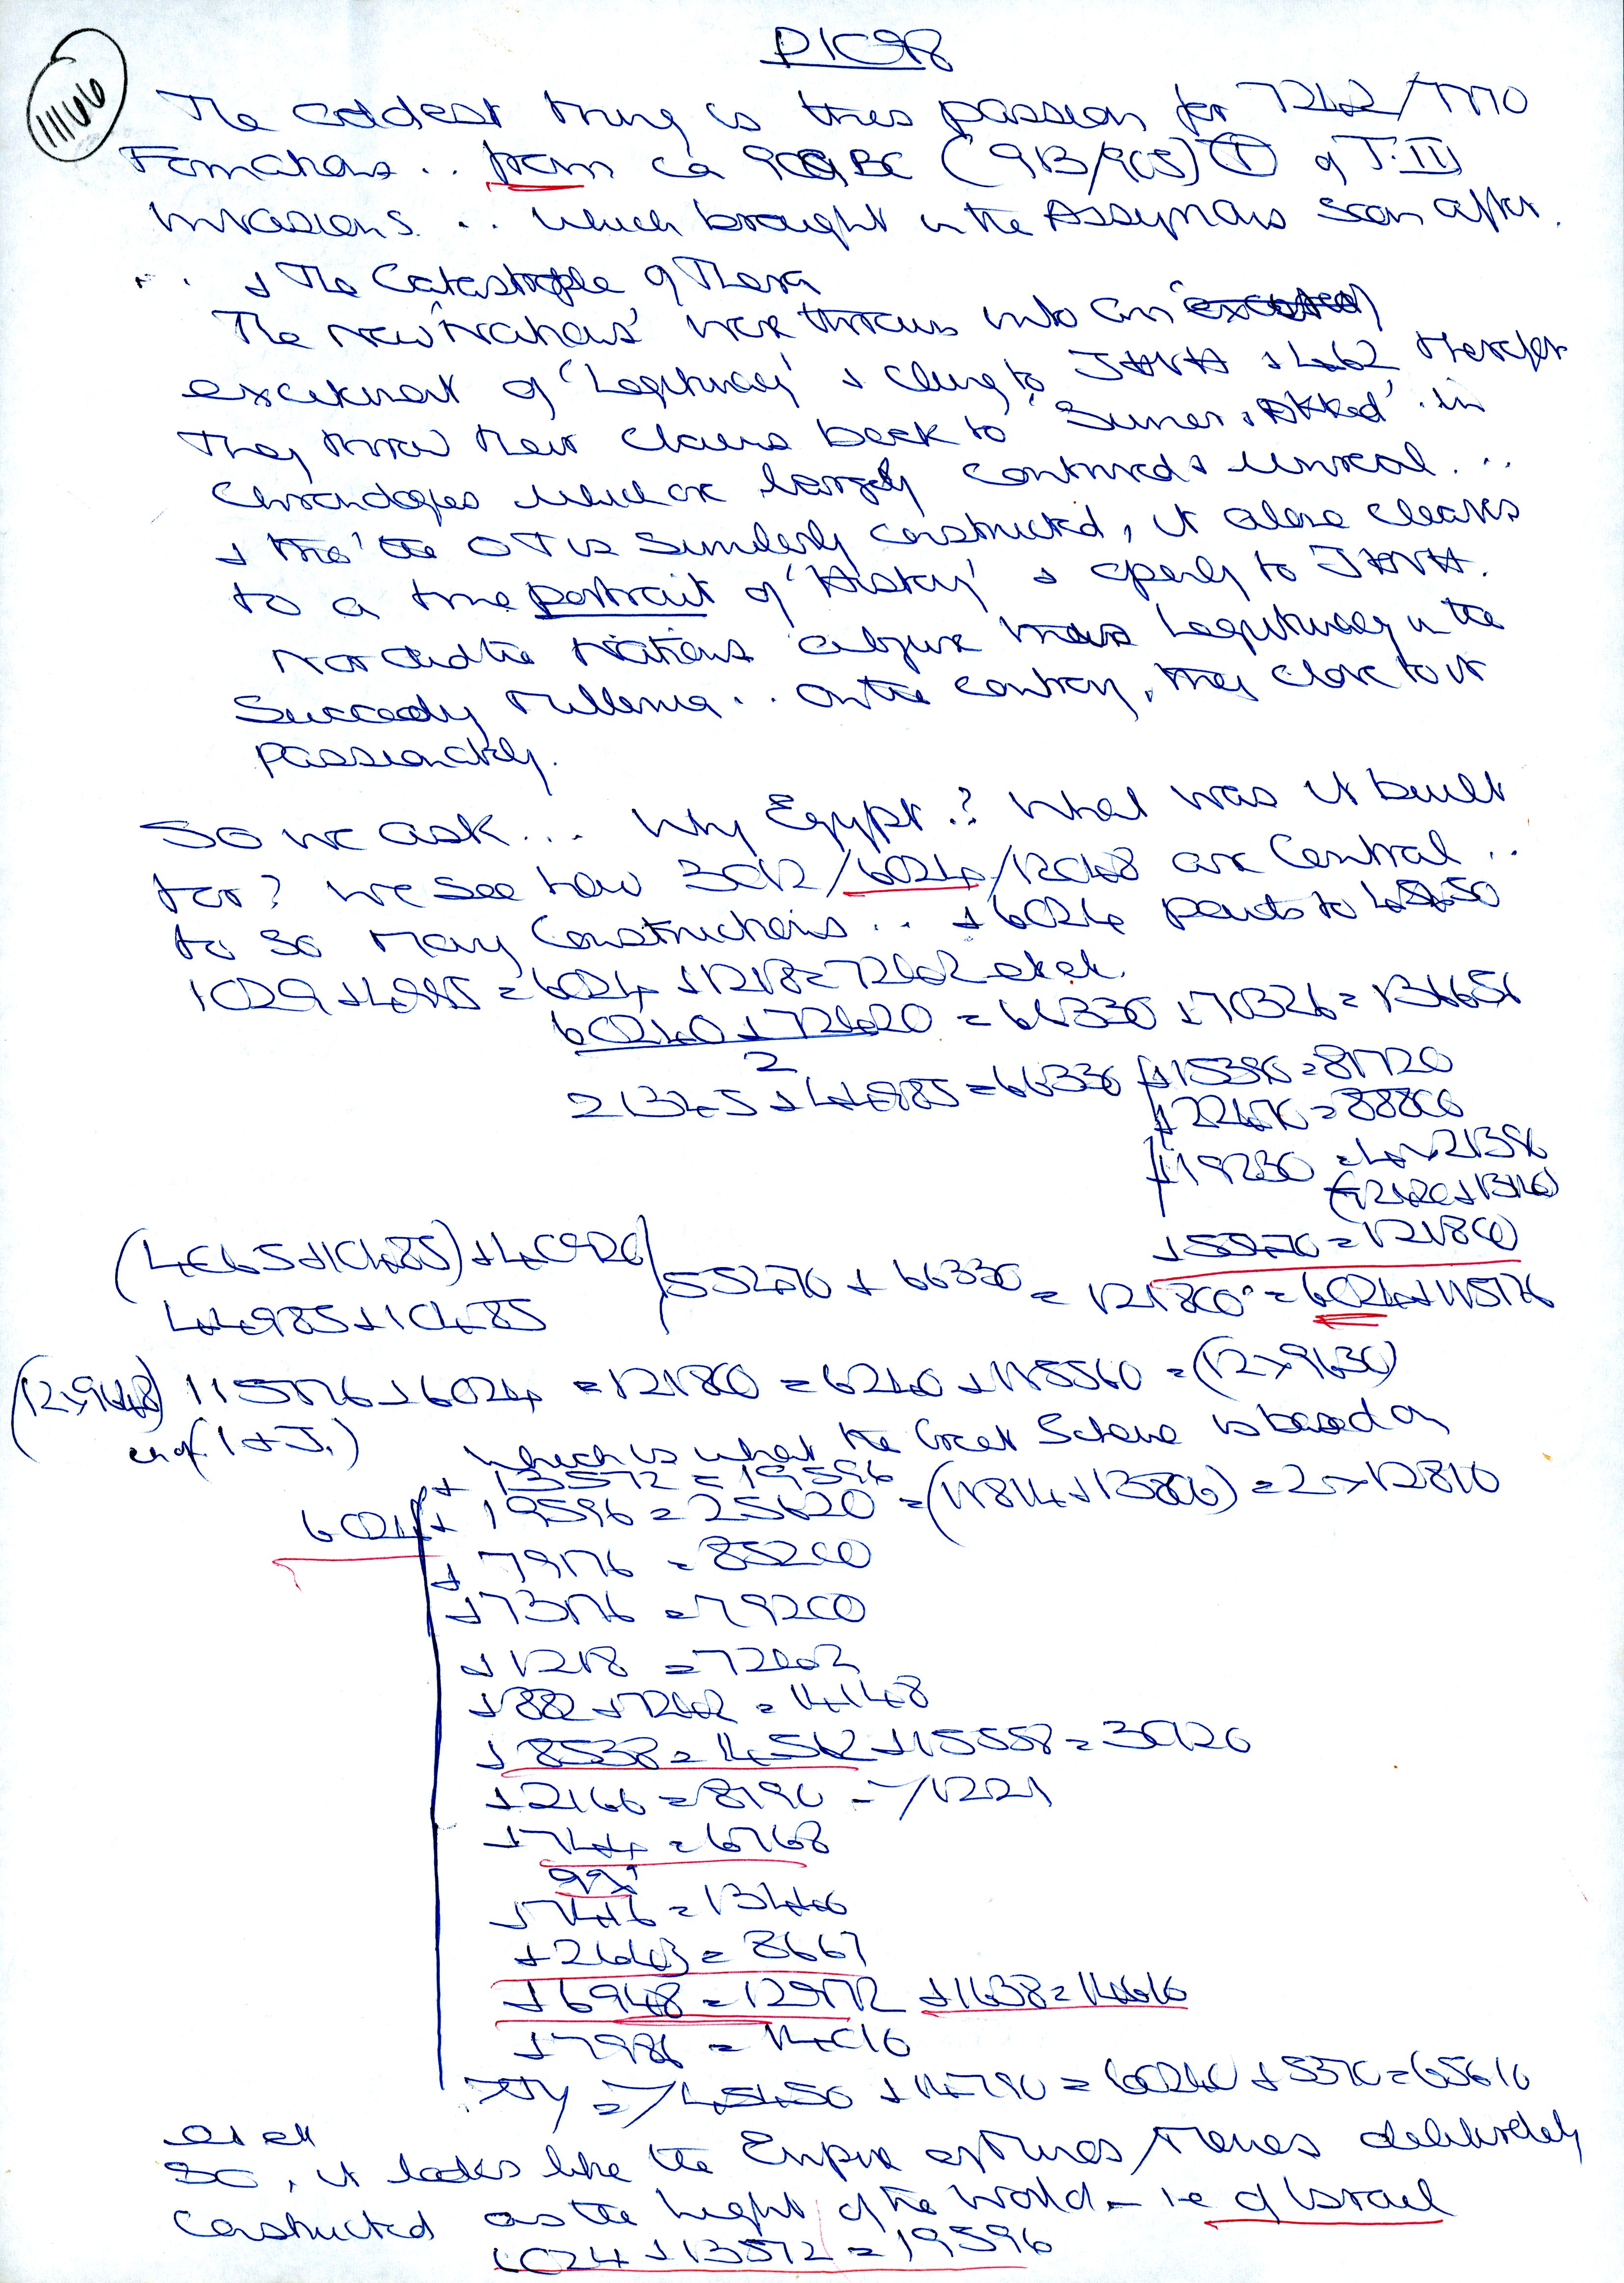 PIC98
The oddest thing is this passion for 7242/
Formations .. from ca 909BC (913/905) (T) of T.III
invasions ... which brought in the Assyrians soon after.
... + The Catastrophe of Thera
The new 'Nations' were thrown into an
excitement of 'Legitimacy' & clung to JHVH + 462
They throw their claims back to 'Sumer, Akkad' in
Chronologies which are largely contrived & unreal ...
+ tho' the OT is similarly constructed, it alone cleaves
to a true portrait of 'History' & openly to JHVH.
Nor did the Nations abjure their Legitimacy in the
Succeeding Millennia .. on the contrary, they clove to it
passionately.
So we ask ... Why Egypt? What was it built
for? We see how 3012/6024/12048 are Central ..
to so many Constructions .. + 6024 points to 45450
1029 + 4995 = 6024 + 1218 = 7242 et al.
60240 + 72420 = 66330 + 70326 = 136656
2
21345 + 44985 = 66330 + 15390 = 81720
+ 22470 = 88800
+ 19230 = 4 × 21390
+ 55470 = 121800
(4065 + 10485) + 40920 55470 + 66330 = 121800 = 6024 + 115776
44985 + 10485
(12 × 9648) 115776 + 6024 = 121800 = 6240 + 115560 = (12 × 9630)
which is what the Great Scheme is based on
+ 13572 = 19596
6024 + 19596 = 25620 = (11814 + 13806) = 2 × 12810
+ 79176 = 85200
+ 73176 = 79200
+ 1218 = 7242
+ 882 + 7242 = 14148
+ 8538 = 14562 + 15558 = 30120
+ 2166 = 8190 = 7/1221
+ 744 = 6768
+ 7416 = 13440
+ 2643 = 8667
+ 6948 = 12972 + 1638 = 14610
+ 7986 = 14010
= 45450 + 14790 = 60240 + 5370 = 65610
et al
So, it looks like the Empire of Menes deliberately
Constructed as the height of the World – i.e. of Israel
6024 + 13572 = 19596